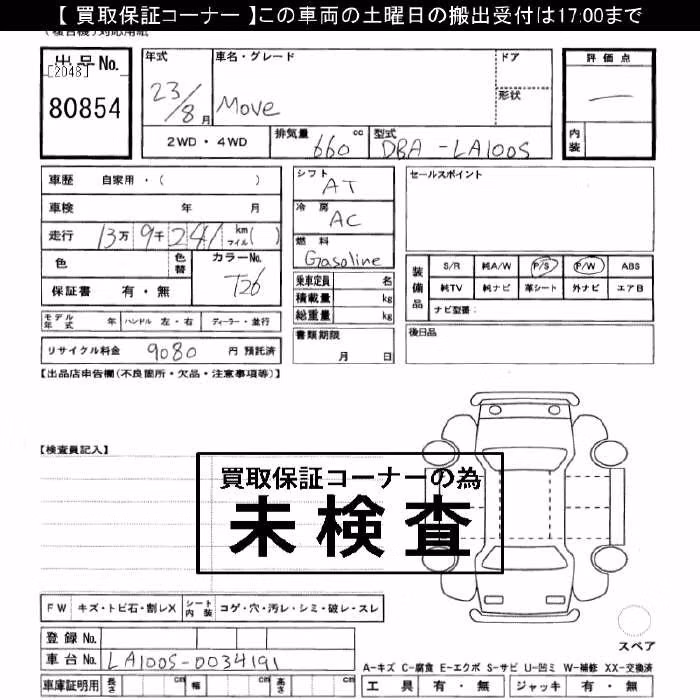 【 買取保証コーナー 】この車両の土曜日の搬出受付は17:00まで
出品No.
[2048]
80854
年式
23/8月
車名・グレード
Move
ドア
形状
評価点
—
内装
2WD・4WD
排気量 660 cc
型式 DBA-LA100S
車歴 自家用・( )
車検 年 月
走行 13万9千241 km マイル( )
色
色替
カラーNo.
T26
保証書 有・無
モデル年式 年
ハンドル 左・右
ディーラー・並行
リサイクル料金 9080 円 預託済
シフト
AT
冷房
AC
燃料
Gasoline
乗車定員 名
積載量 kg
総重量 kg
書類期限
月 日
セールスポイント
装備品
S/R 純A/W P/S P/W ABS
純TV 純ナビ 革シート 外ナビ エアB
ナビ型番:
後日品
【出品店申告欄(不良箇所・欠品・注意事項等)】
【検査員記入】
買取保証コーナーの為
未検査
FW キズ・トビ石・割レX
シート内装 コゲ・穴・汚レ・シミ・破レ・スレ
登録 No.
車台 No. LA100S-0034191
車庫証明用 長さ cm 幅 cm 高さ cm
スペア
A-キズ C-腐食 E-エクボ S-サビ U-凹ミ W-補修 XX-交換済
工具 有・無 ジャッキ 有・無